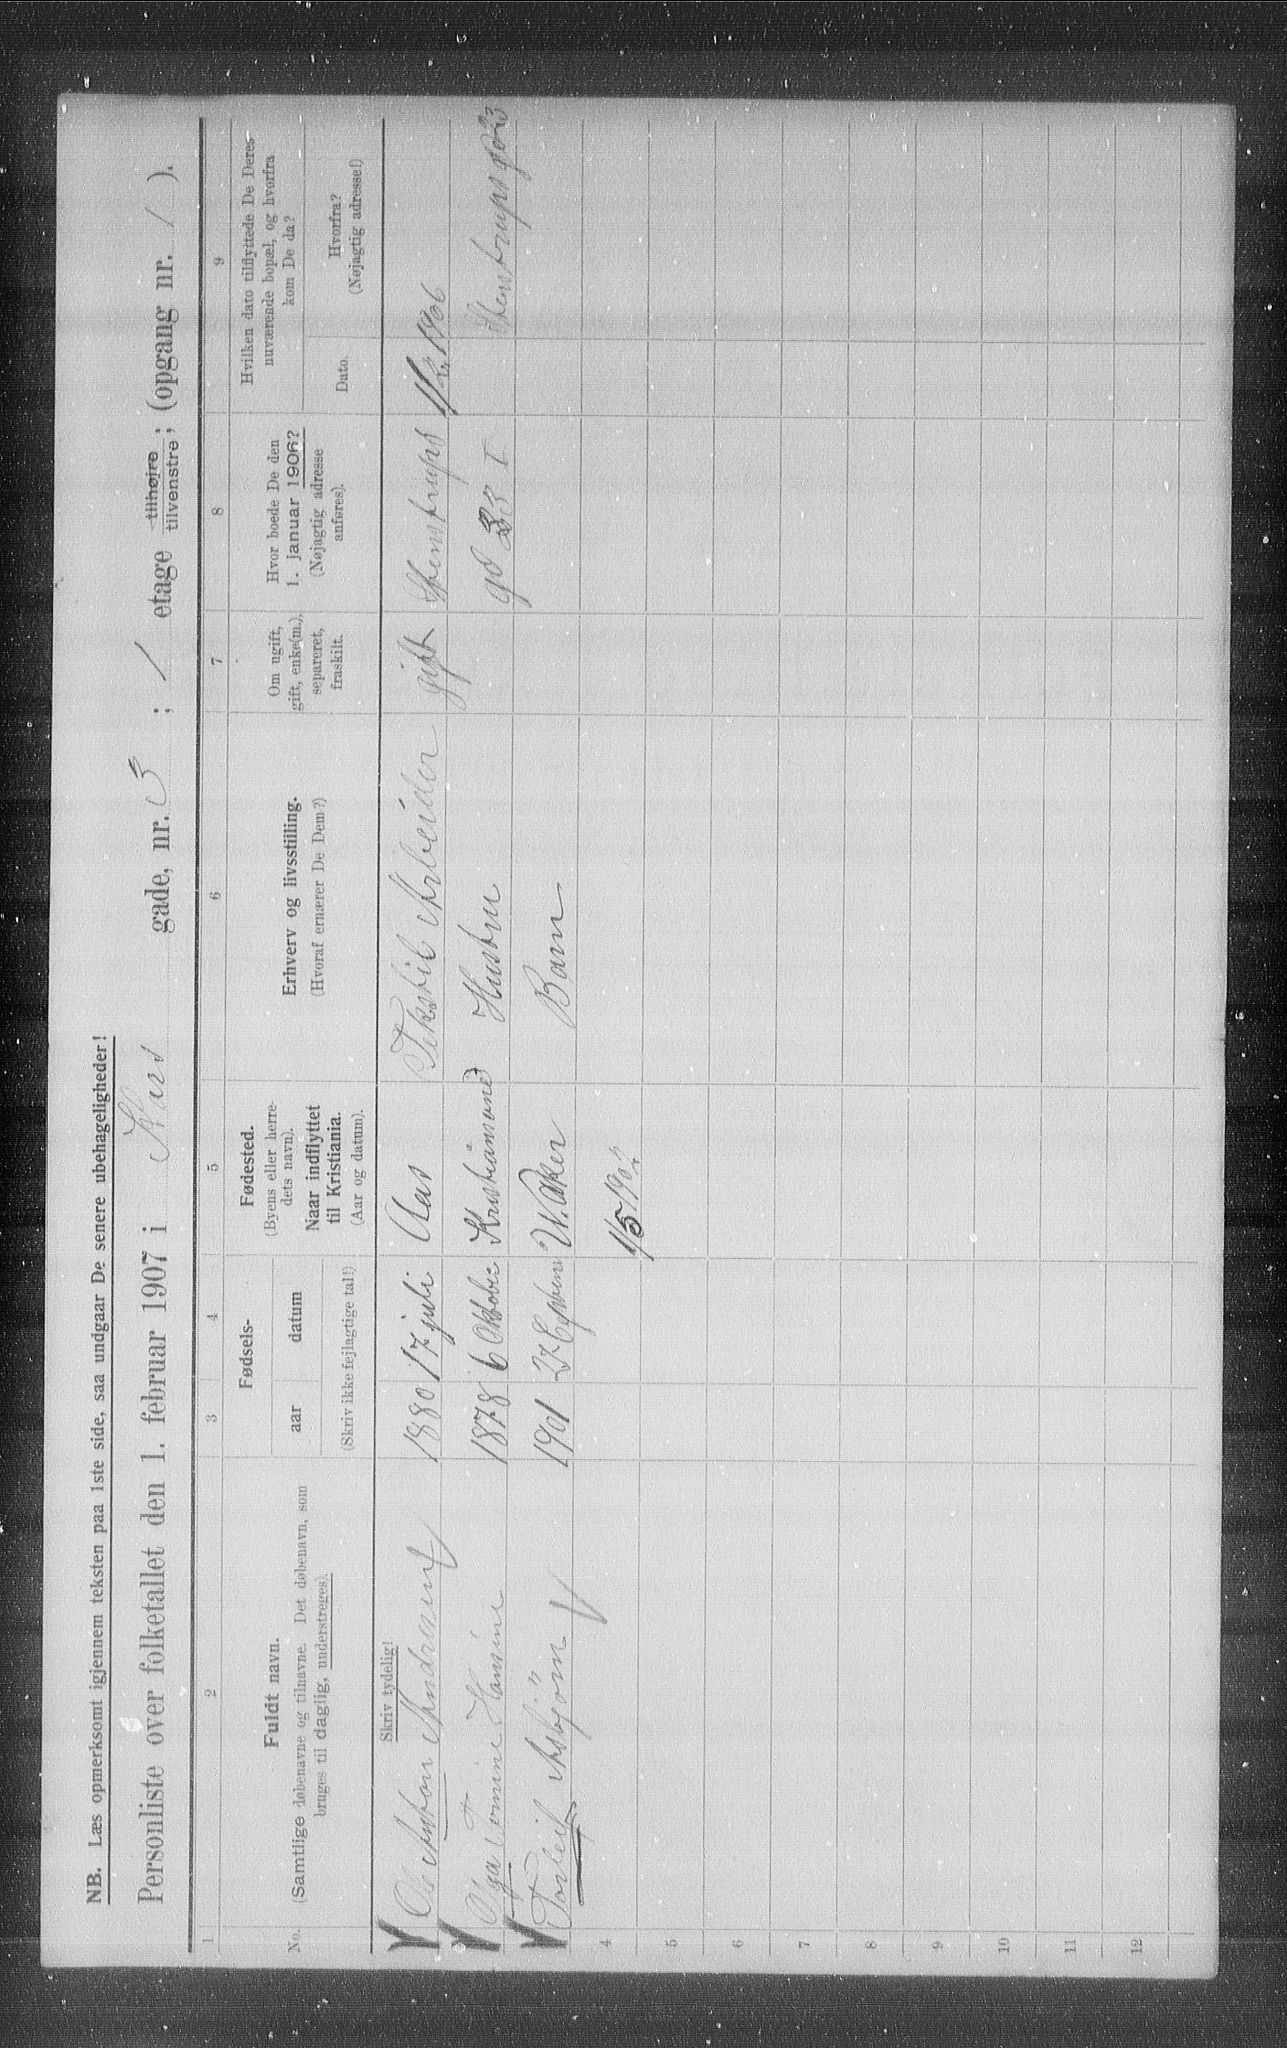 NB. Læs opmerksomt igjennem teksten paa 1ste side, saa undgaar De senere ubehageligheder!
Personliste over folketallet den 1. februar 1907 i gade, nr. 3 ; 1 etage tilhøire tilvenstre; (opgang nr. 1 ).
1 2 3 4 5 6 7 8 9
No.
Fuldt navn.
(Samtlige døbenavne og tilnavne. Det døbenavn, som
bruges til daglig, understreges).
Fødsels-
aar datum
(Skriv ikke fejlagtige tal!)
Fødested.
(Byens eller herre-
dets navn).
Naar indflyttet
til Kristiania.
(Aar og datum).
Erhverv og livsstilling.
(Hvoraf ernærer De Dem?)
Om ugift,
gift, enke(m.),
separeret,
fraskilt.
Hvor boede De den
1. januar 1906?
(Nøjagtig adresse
anføres).
Hvilken dato tilflyttede De Deres
nuværende bopæl, og hvorfra
kom De da?
Dato.
Hvorfra?
(Nøjagtig adresse!)
Skriv tydelig!
Ole Anton 1880 17 juli Aas Tekstil Arbeider gift Stenstrups 1906
Olga Tomine Hansine 1878 6 Oktober Kristiansund Hustru gd 33 I Stenstrups gd 23
Torleif Asbjørn 1901 27 V. Aker Barn
4 1/5 190
5
6
7
8
9
10
11
12